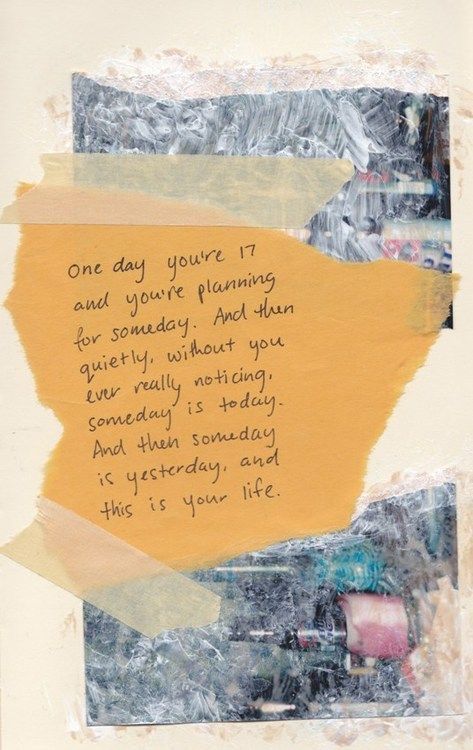 One day you're 17
and you're planning
for someday. And then
quietly, without you
ever really noticing,
someday is today.
And then someday
is yesterday, and
this is your life.